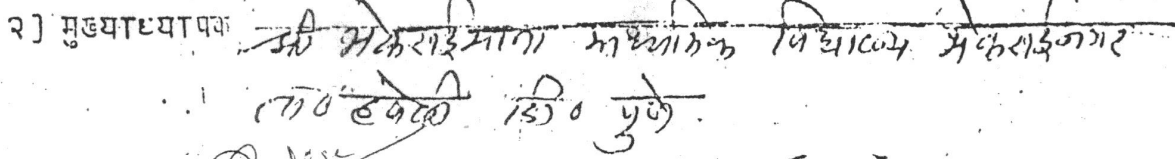 २) मुख्याध्यापक श्री भेकराईमाता माध्यमिक विद्यालय भेकराईनगर
ता० हवेली जि० पुणे.